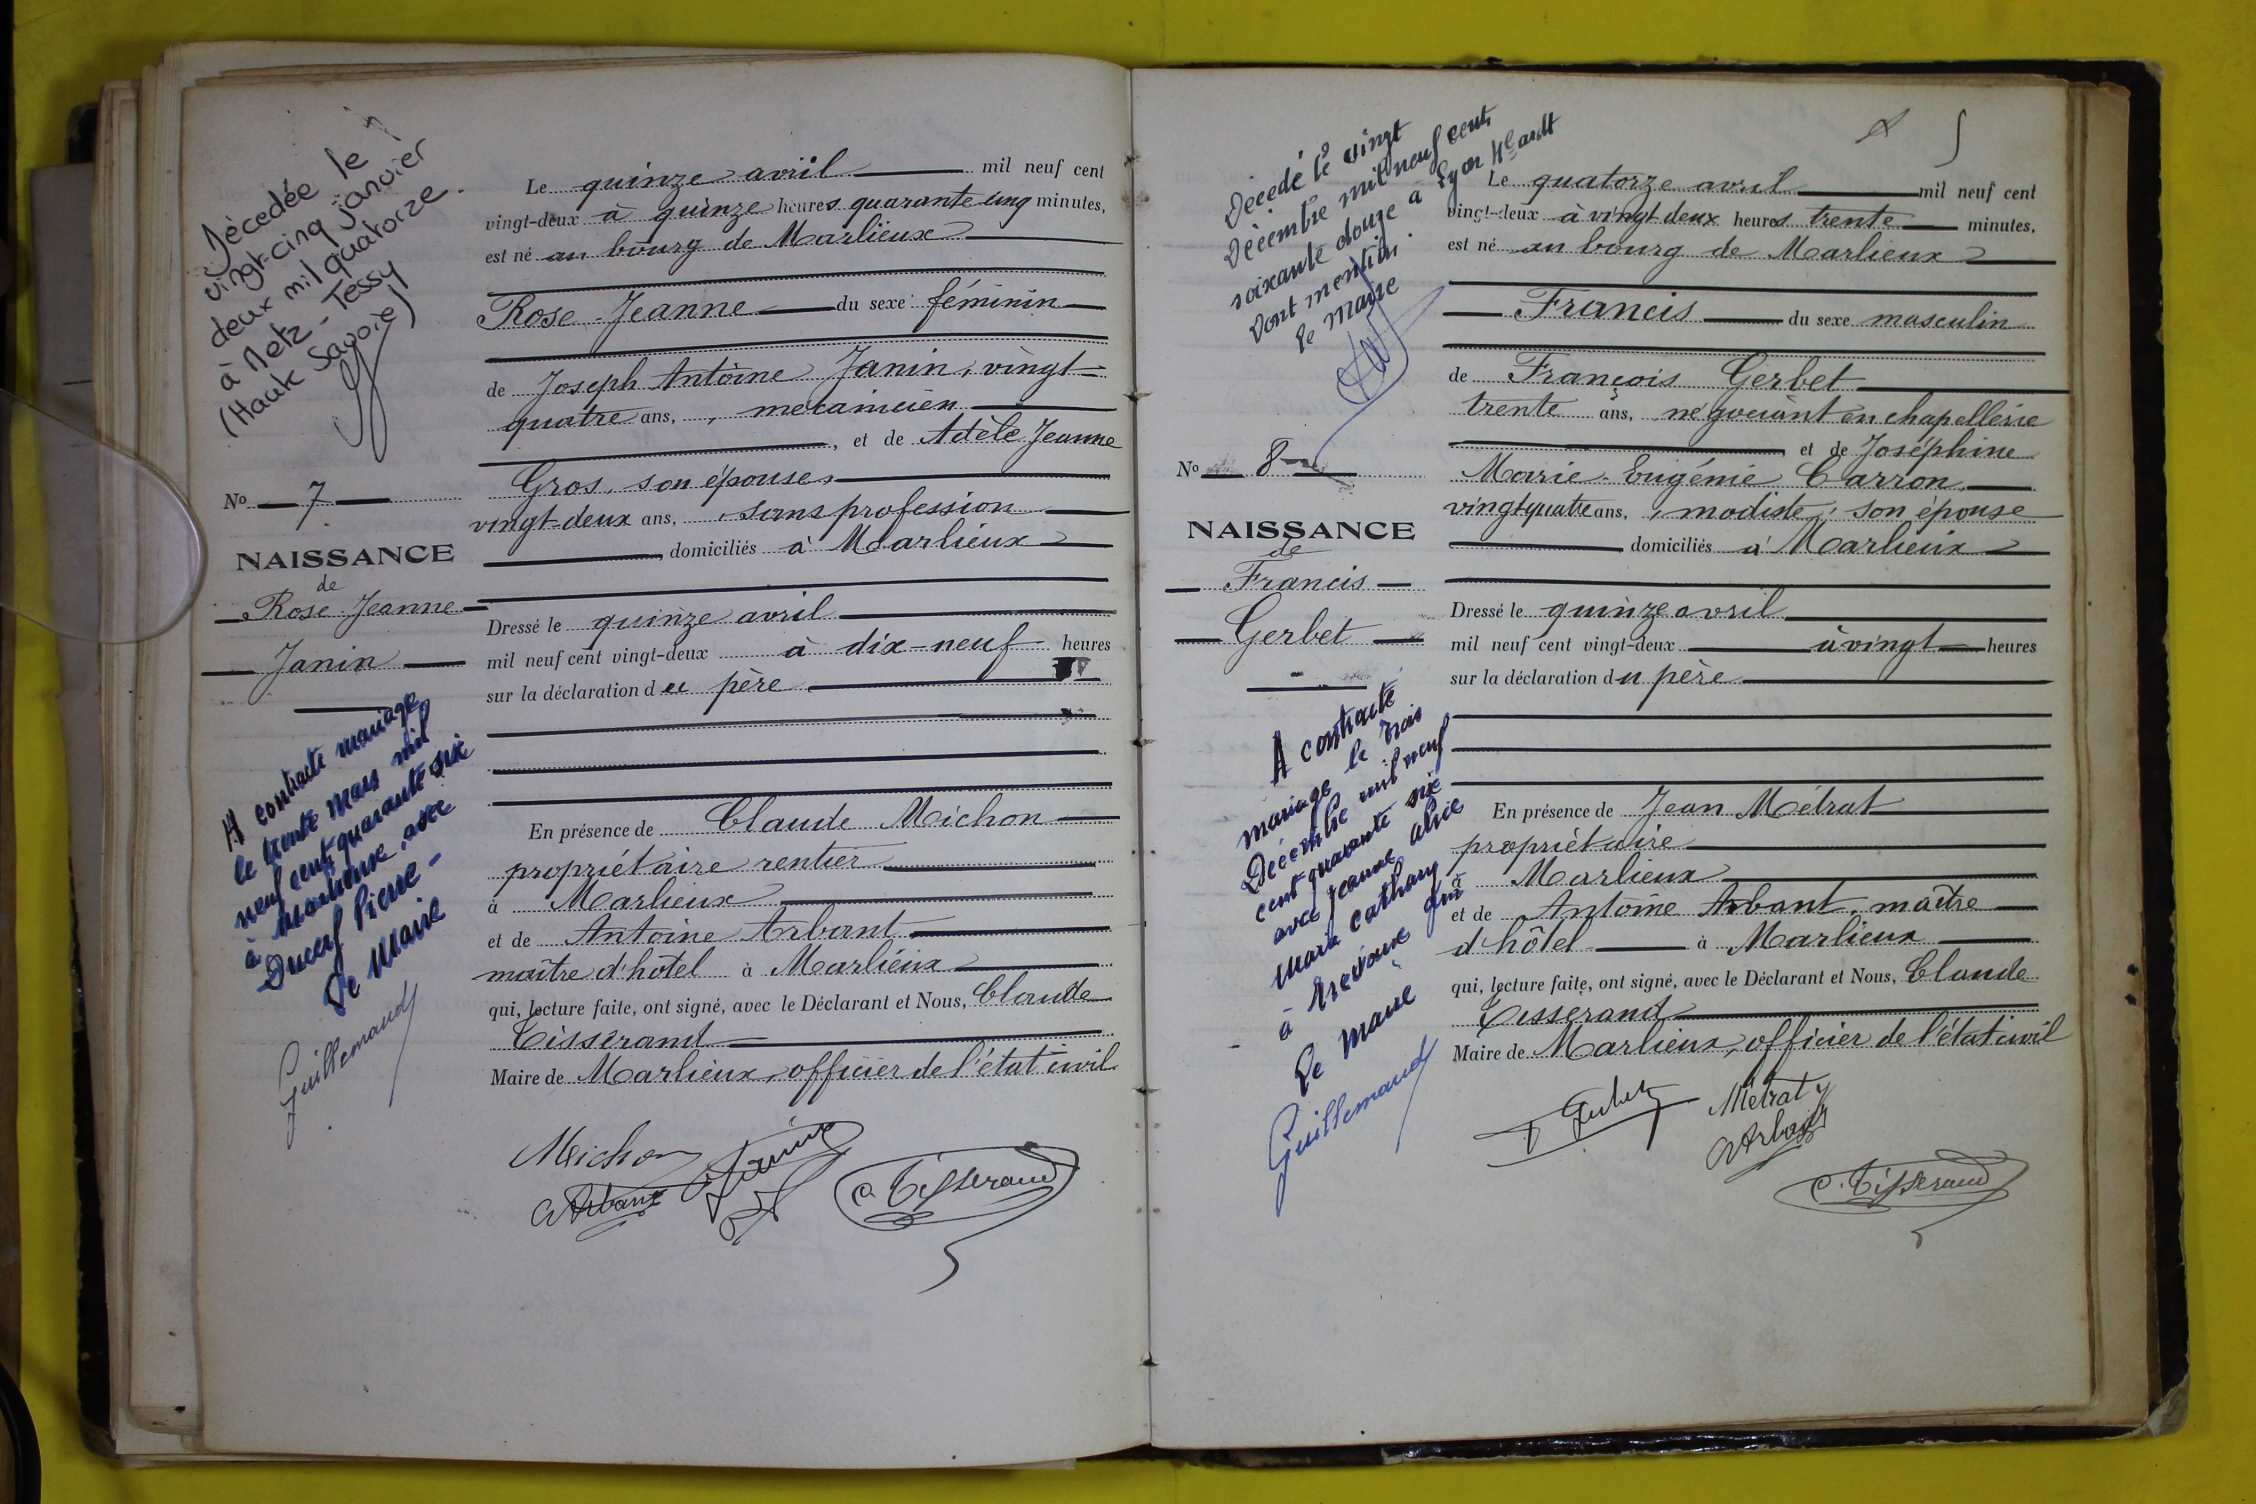 Décedée le
vingt-cinq janvier
deux mil quatorze
à Metz-Tessy
(Haute Savoie)
No 7
NAISSANCE
de
Rose Jeanne
Janin
A contracté mariage
le trente mars mil
neuf cent quarante six
à Marlieux avec
Ducerf Pierre -
Le Maire
Guillemaud
Le quinze avril mil neuf cent
vingt-deux à quinze heures quarante cinq minutes,
est né au bourg de Marlieux
Rose Jeanne du sexe féminin
de Joseph Antoine Janin, vingt
quatre ans, mecanicien
, et de Adèle Jeanne
Gros, son épouse,
vingt-deux ans, sans profession
, domiciliés à Marlieux
Dressé le quinze avril
mil neuf cent vingt-deux à dix-neuf heures
sur la déclaration du père
En présence de Claude Michon
propriétaire rentier
à Marlieux
et de Antoine Arbant
maître d'hôtel à Marlieux
qui, lecture faite, ont signé, avec le Déclarant et Nous, Claude
Tisserand
Maire de Marlieux, officier de l'état civil
Michon
A Arbant Janin
C. Tisserand
5
Décédé le vingt
Décembre mil neuf cent
soixante douze à Lyon 4e ardt
Dont mention.
Le Maire
No 8
NAISSANCE
de
Francis
Gerbet
A contracté
mariage le trois
Décembre mil neuf
cent quarante six
avec Jeanne Alice
Marie Cathany
à
Le Maire
Guillemaud
Le quatorze avril mil neuf cent
vingt-deux à vingt deux heures trente minutes,
est né au bourg de Marlieux
Francis du sexe masculin
de François Gerbet
trente ans, négociant en chapellerie
et de Joséphine
Marie-Eugénie Carron,
vingt quatre ans, modiste, son épouse
domiciliés à Marlieux
Dressé le quinze avril
mil neuf cent vingt-deux à vingt heures
sur la déclaration du père
En présence de Jean Métrat
propriétaire
à Marlieux
et de Antoine Arbant, maître
d'hôtel à Marlieux
qui, lecture faite, ont signé, avec le Déclarant et Nous, Claude
Tisserand
Maire de Marlieux, officier de l'état civil
F Gerbet Métrat
A Arbant
C. Tisserand